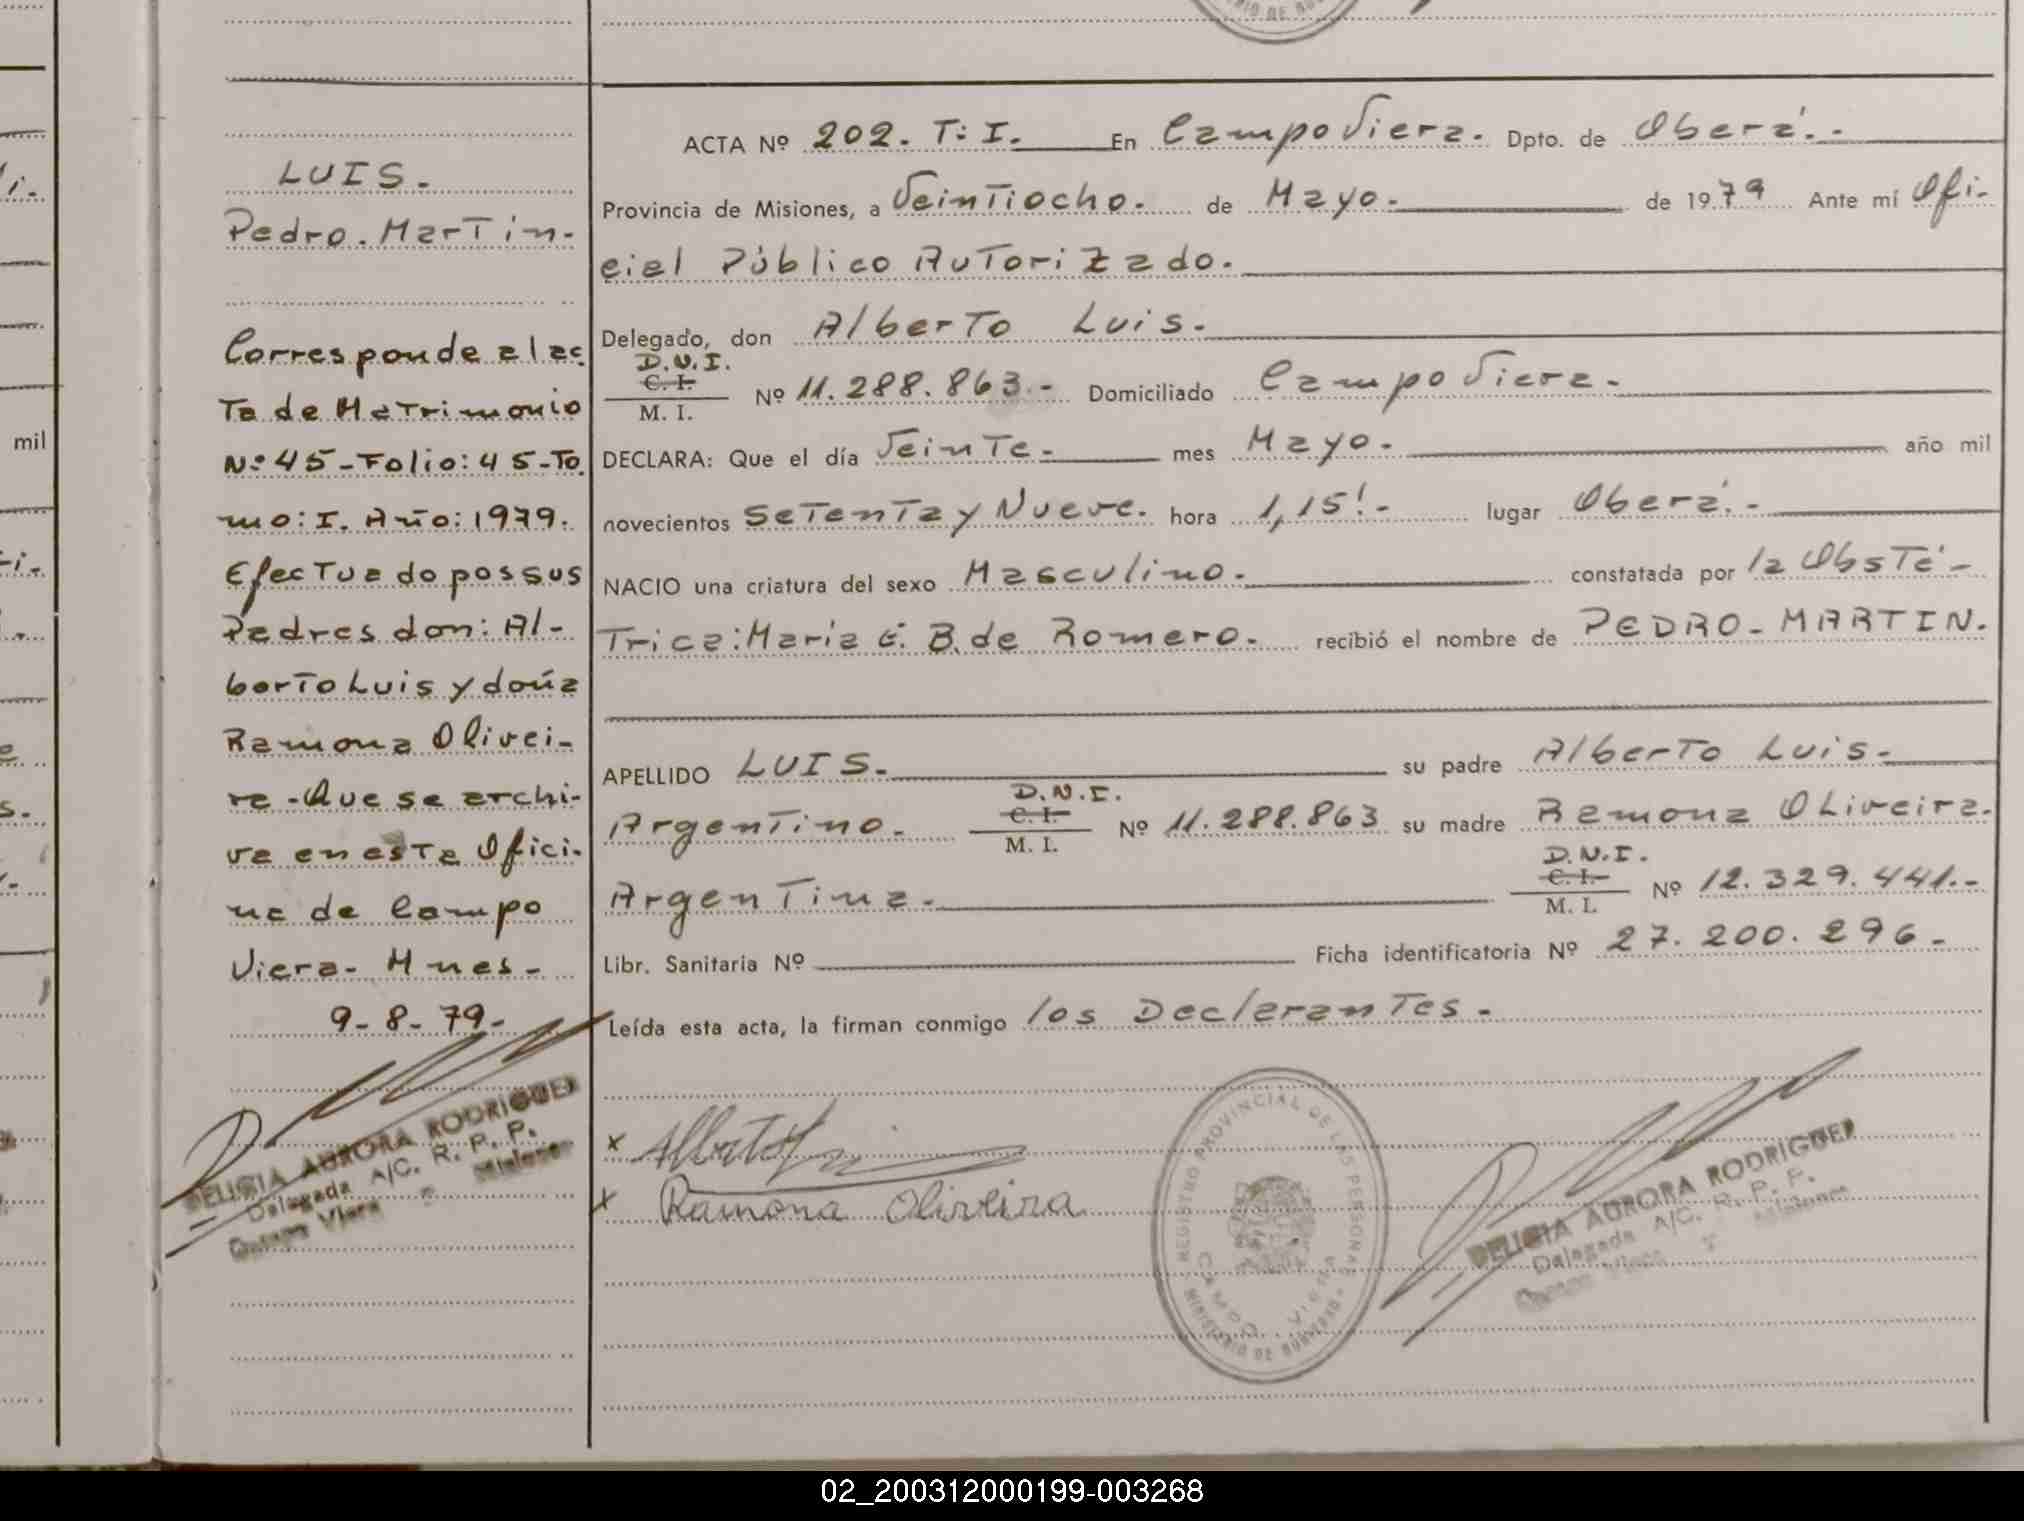 LUIS.
Pedro. Martin.
Corresponde al ac
ta de Matrimonio
Nº 45 - Folio: 45 - To
mo: I. Año: 1979.
Efectuado po s sus
Padres don: Al-
berto Luis y doña
Ramona Olivei-
ra - Que se archi-
va en esta Ofici-
na de Campo
Viera - Mnes -
9 - 8 - 79 -
DELICIA AURORA RODRIGUEZ
Delegada A/C. R. P. P.
Campo Viera Misiones
ACTA Nº 202. T: I. En Campo Viera. Dpto. de Oberá. -
Provincia de Misiones, a Veintiocho. de Mayo. de 1979 Ante mí Ofi-
cial Público Autorizado.
Delegado, don Alberto Luis.
D.N.I.
C. I.
M. I.
Nº 11.288.863. - Domiciliado Campo Viera.
DECLARA: Que el día Veinte - mes Mayo. año mil
novecientos Setenta y Nueve. hora 1,15'. - lugar Oberá. -
NACIO una criatura del sexo Masculino. constatada por la Obsté-
trica: María E. B. de Romero. recibió el nombre de PEDRO - MARTIN.
APELLIDO LUIS. su padre Alberto Luis.
Argentino. D.N.I. C. I. M. I. Nº 11.288.863 su madre Ramona Oliveira.
Argentina. D.N.I. C. I. M. I. Nº 12.329.441. -
Libr. Sanitaria Nº Ficha identificatoria Nº 27.200.296 -
Leída esta acta, la firman conmigo los Declarantes -
x Alberto Luis
x Ramona Oliveira
REGISTRO PROVINCIAL DE LAS PERSONAS
CAMPO VIERA
MINISTERIO DE GOBIERNO
DELICIA AURORA RODRIGUEZ
Delegada A/C. R. P. P.
Campo Viera Misiones
mil
02_200312000199-003268